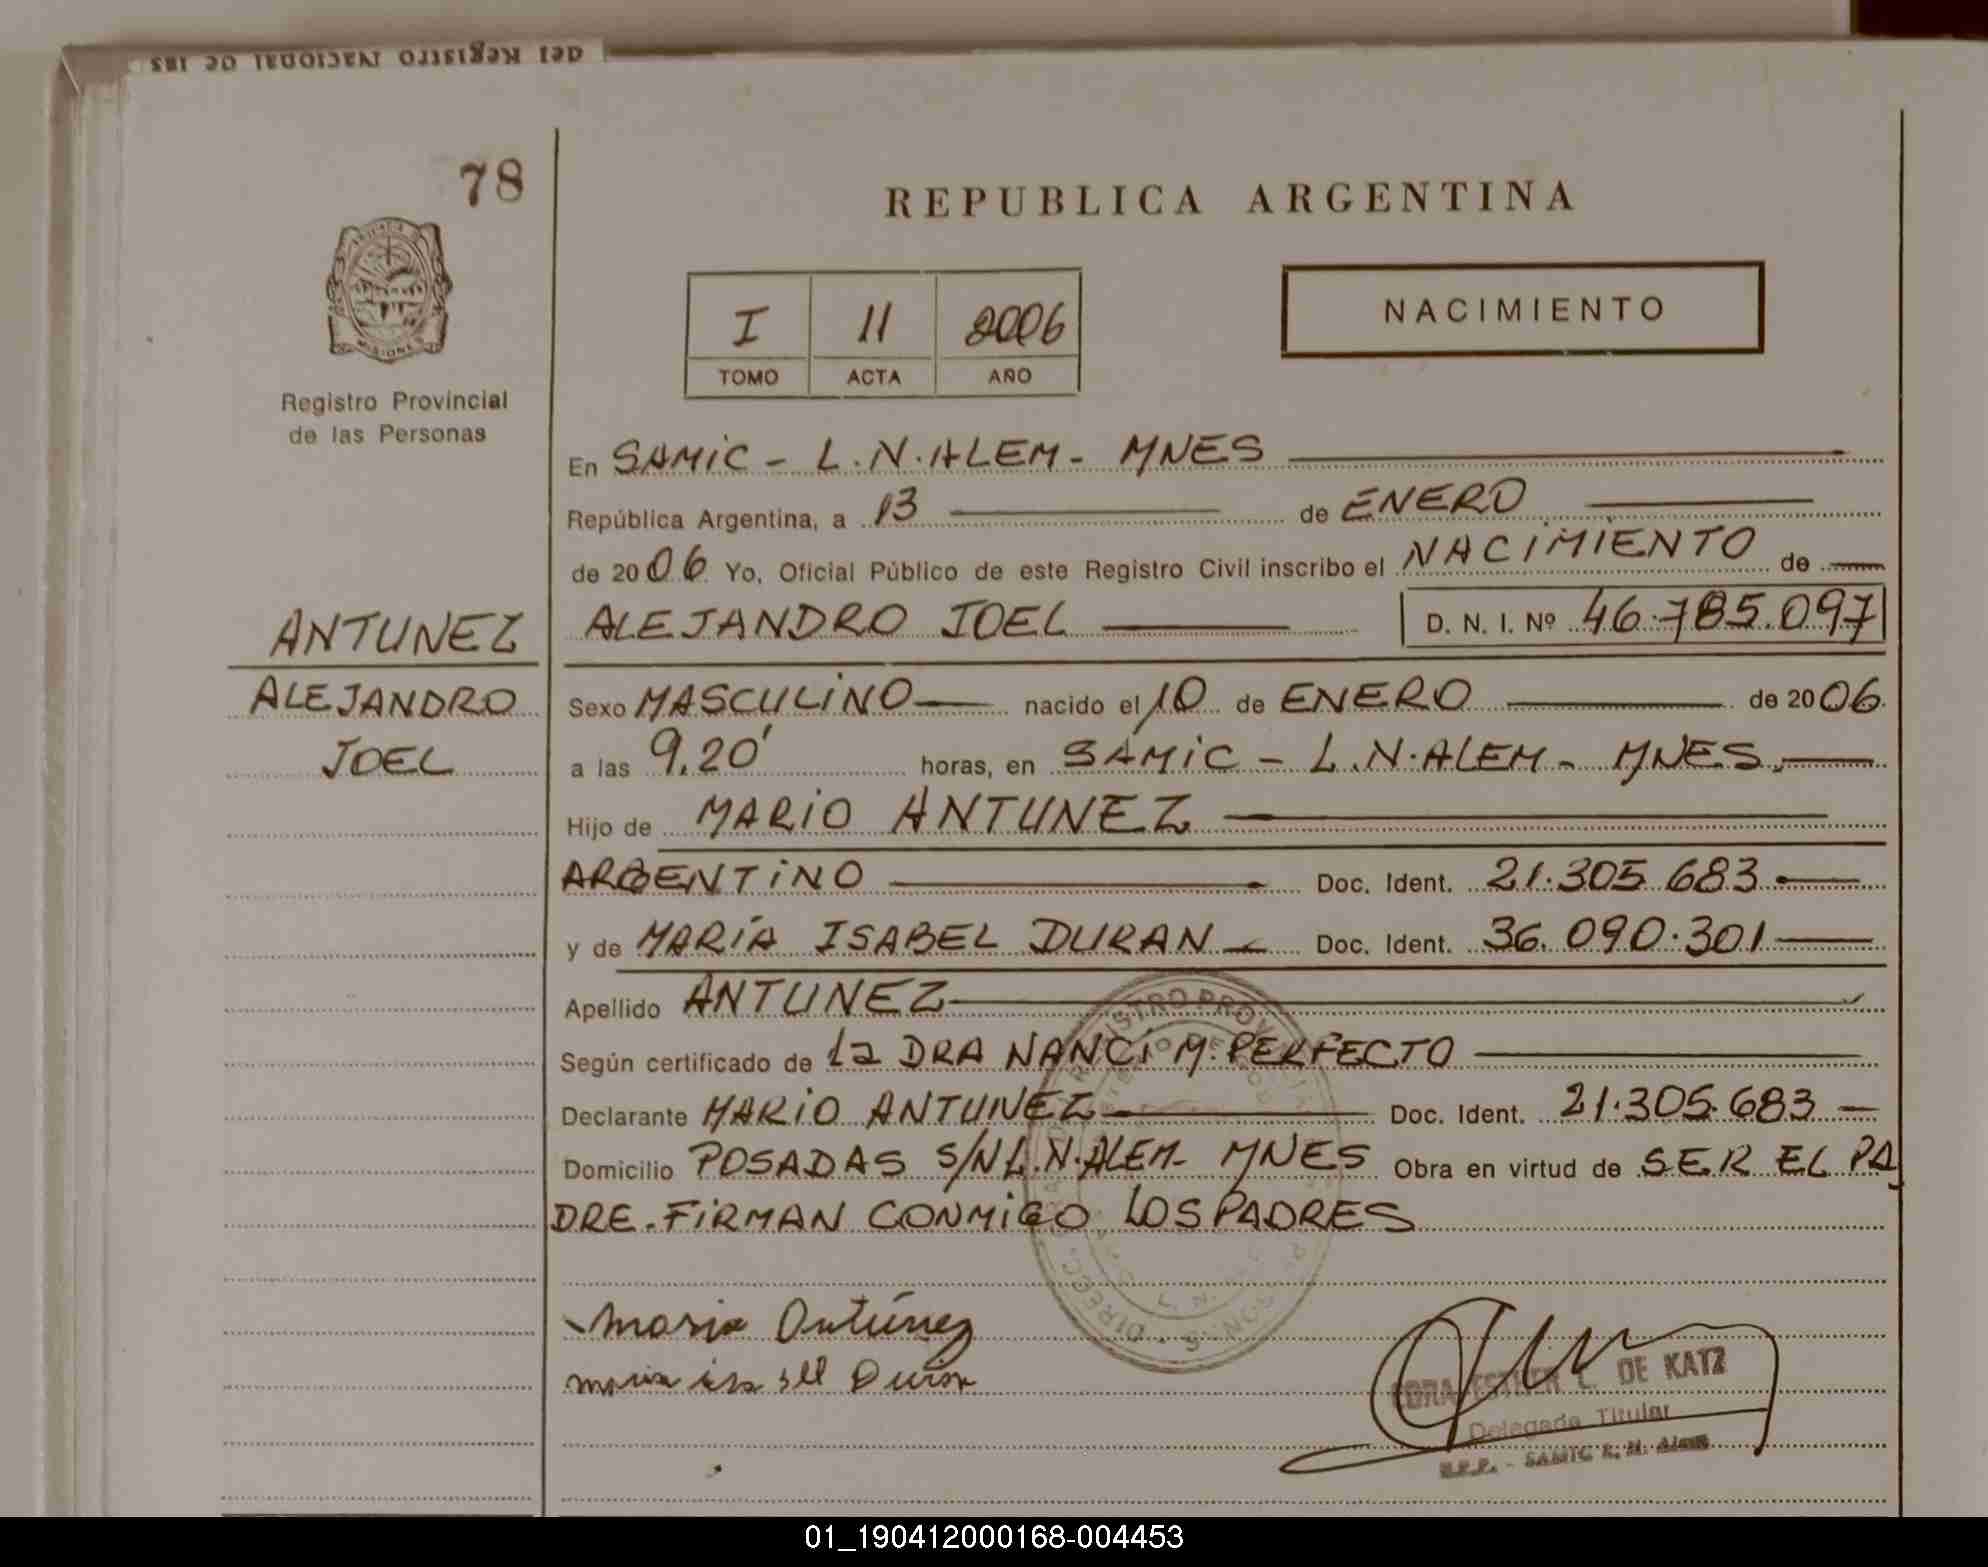 del Registro Nacional de las
78
REPUBLICA ARGENTINA
MISIONES
I 11 2006
TOMO ACTA AÑO
NACIMIENTO
Registro Provincial
de las Personas
En SAMIC - L.N.ALEM - MNES
República Argentina, a 13 de ENERO
de 2006 Yo, Oficial Público de este Registro Civil inscribo el NACIMIENTO de
ANTUNEZ ALEJANDRO JOEL D. N. I. Nº 46.785.097
ALEJANDRO Sexo MASCULINO nacido el 10 de ENERO de 2006
JOEL a las 9.20' horas, en SAMIC - L.N.ALEM - MNES.
Hijo de MARIO ANTUNEZ
ARGENTINO Doc. Ident. 21.305.683
y de MARÍA ISABEL DURAN Doc. Ident. 36.090.301
Apellido ANTUNEZ
Según certificado de La DRA NANCI M. PERFECTO
Declarante MARIO ANTUNEZ Doc. Ident. 21.305.683
Domicilio POSADAS S/N L.N.ALEM - MNES Obra en virtud de SER EL PA
DRE. FIRMAN CONMIGO LOS PADRES
Mario Antúnez
maria isabell Duran
CDRA. ESTHER L. DE KATZ
Delegada Titular
R.P.P. - SAMIC L. N. Alem
01_190412000168-004453